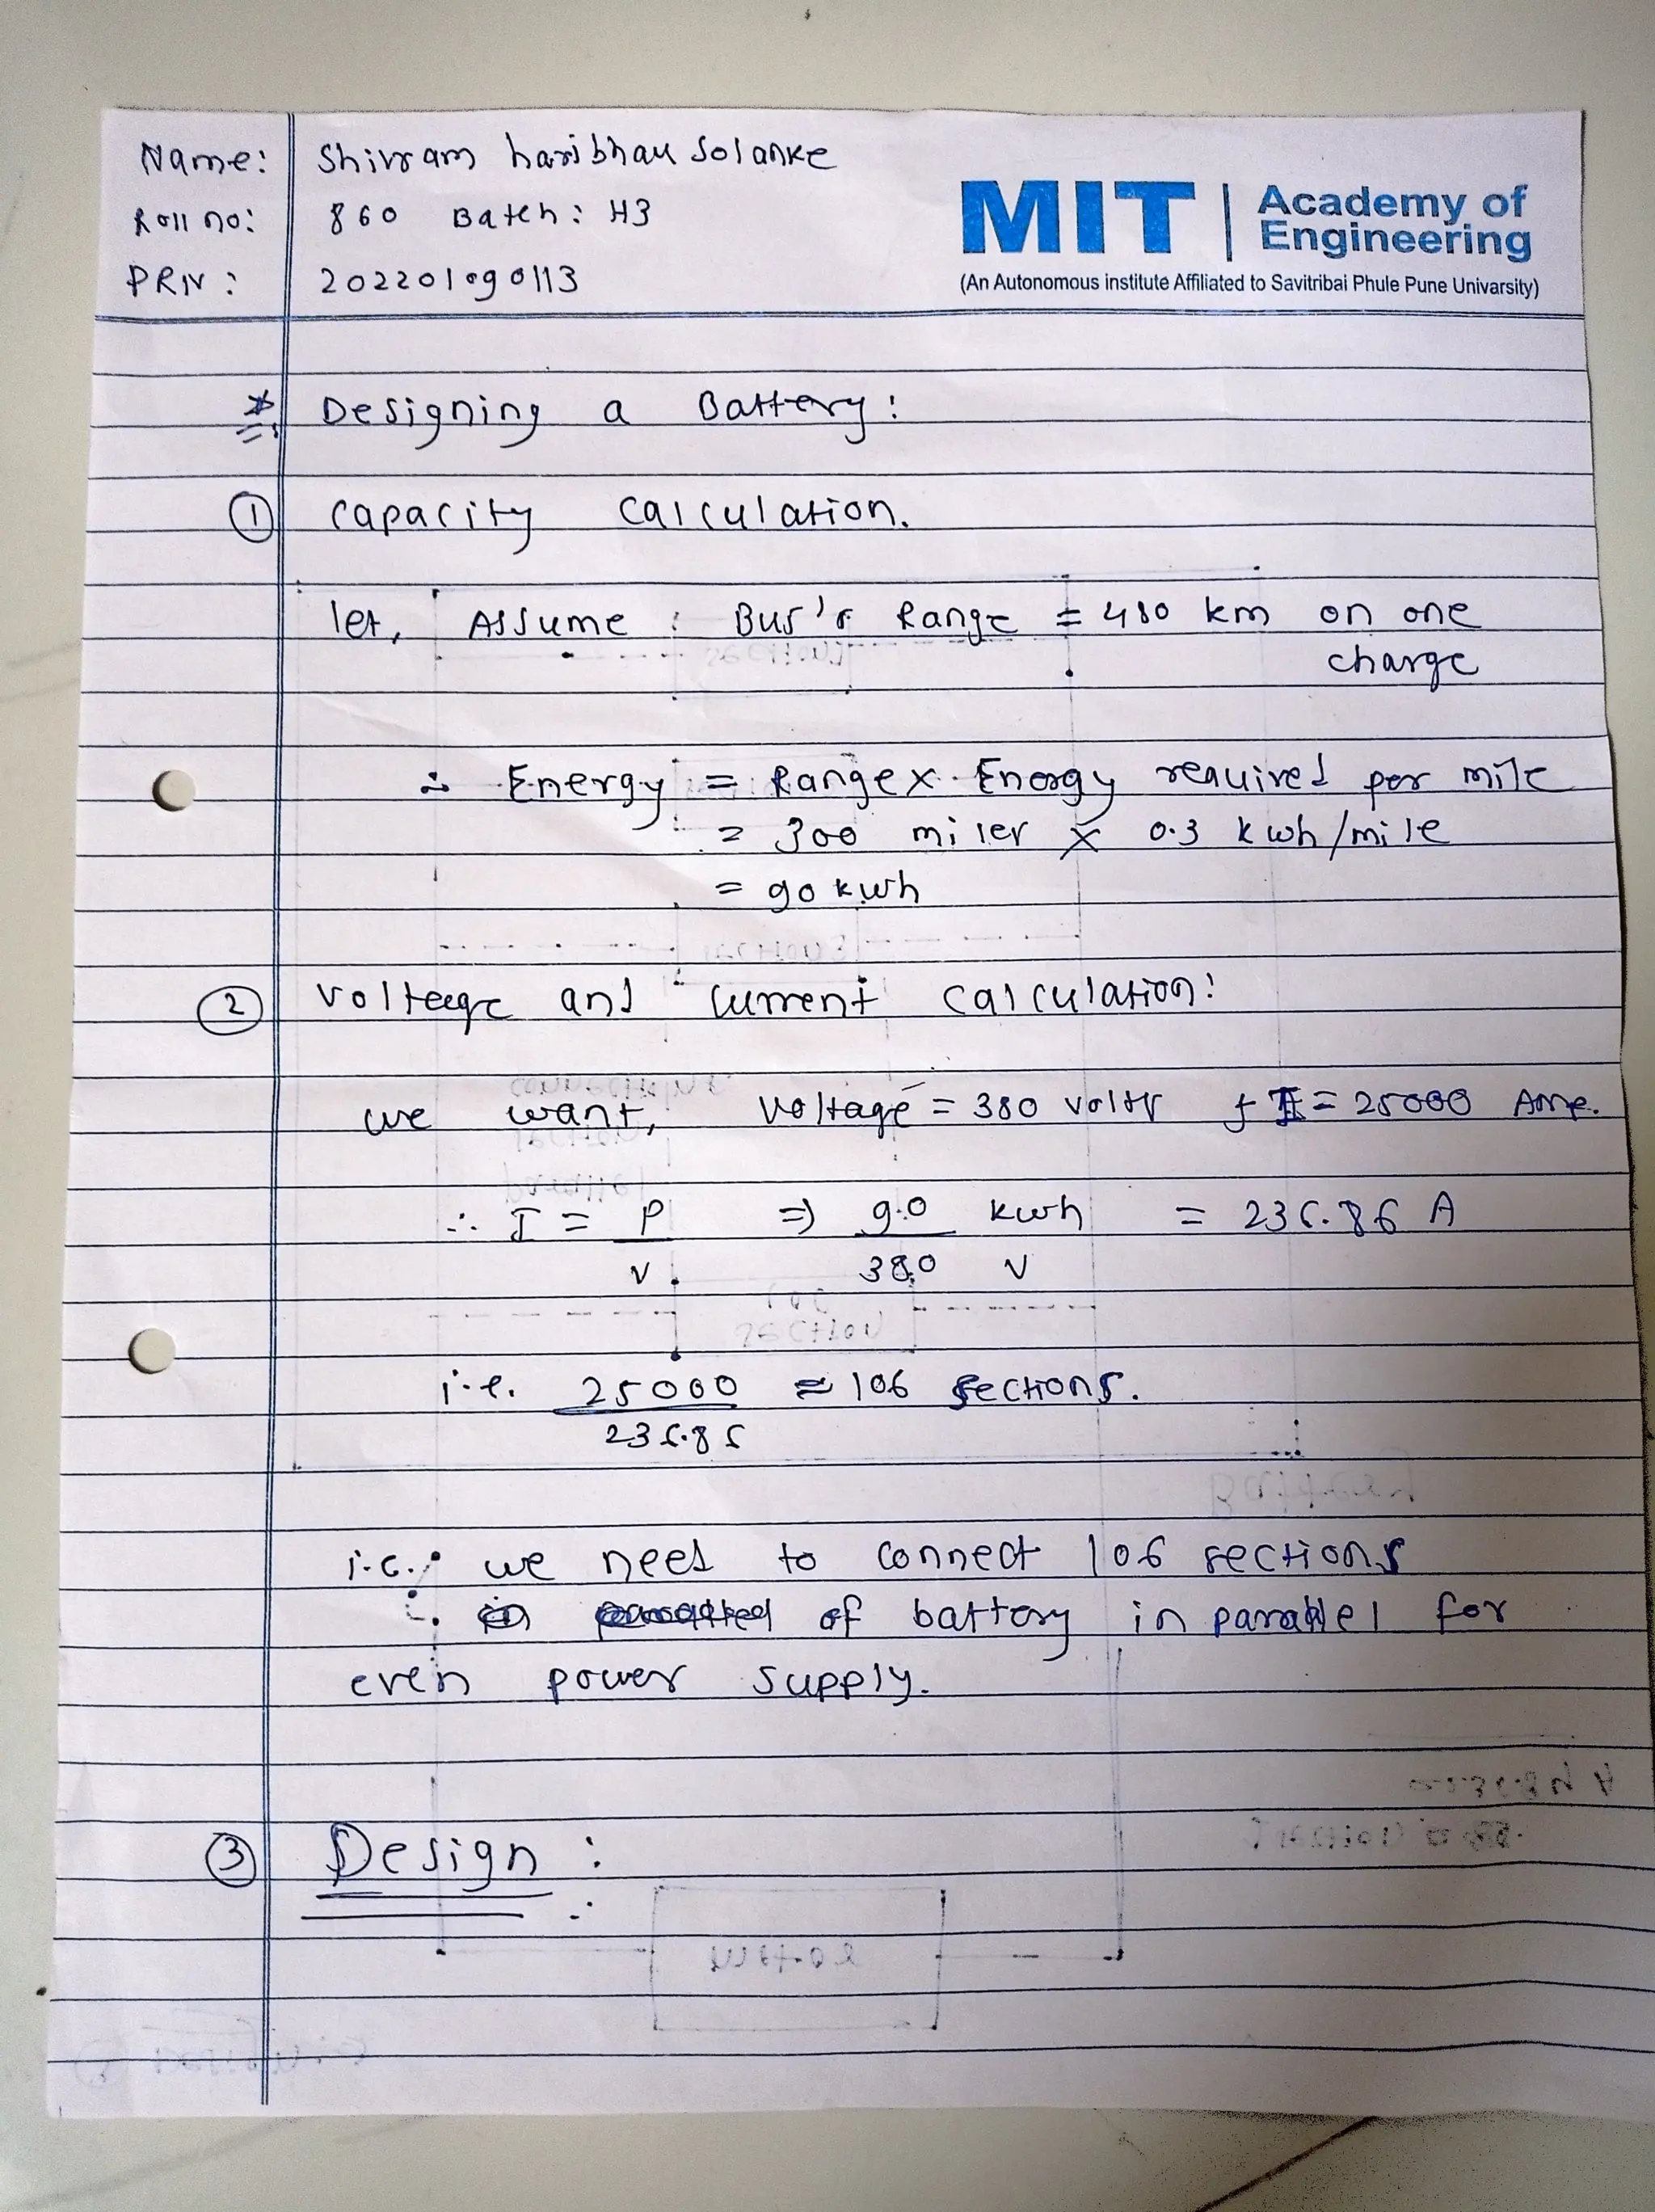 Name: Shivram haribhau Solanke
Roll no: 860 Batch: H3
PRN: 202201090113
MIT | Academy of Engineering
(An Autonomous institute Affiliated to Savitribai Phule Pune Univarsity)
* Designing a Battery:
① Capacity Calculation.
let, Assume : Bus's Range = 480 km on one
charge
∴ Energy = Range x Energy required per mile
= 300 miles x 0.3 kwh/mile
= 90 kwh
② Volteege and Current Calculation:
we want, Voltage = 380 volts & I = 25000 Amp.
∴ I = P/V ⇒ 90 kwh / 380 V = 236.86 A
i.e. 25000 / 236.86 ≈ 106 sections.
i.e. we need to connect 106 sections
of battery in parallel for
even power supply.
③ Design :